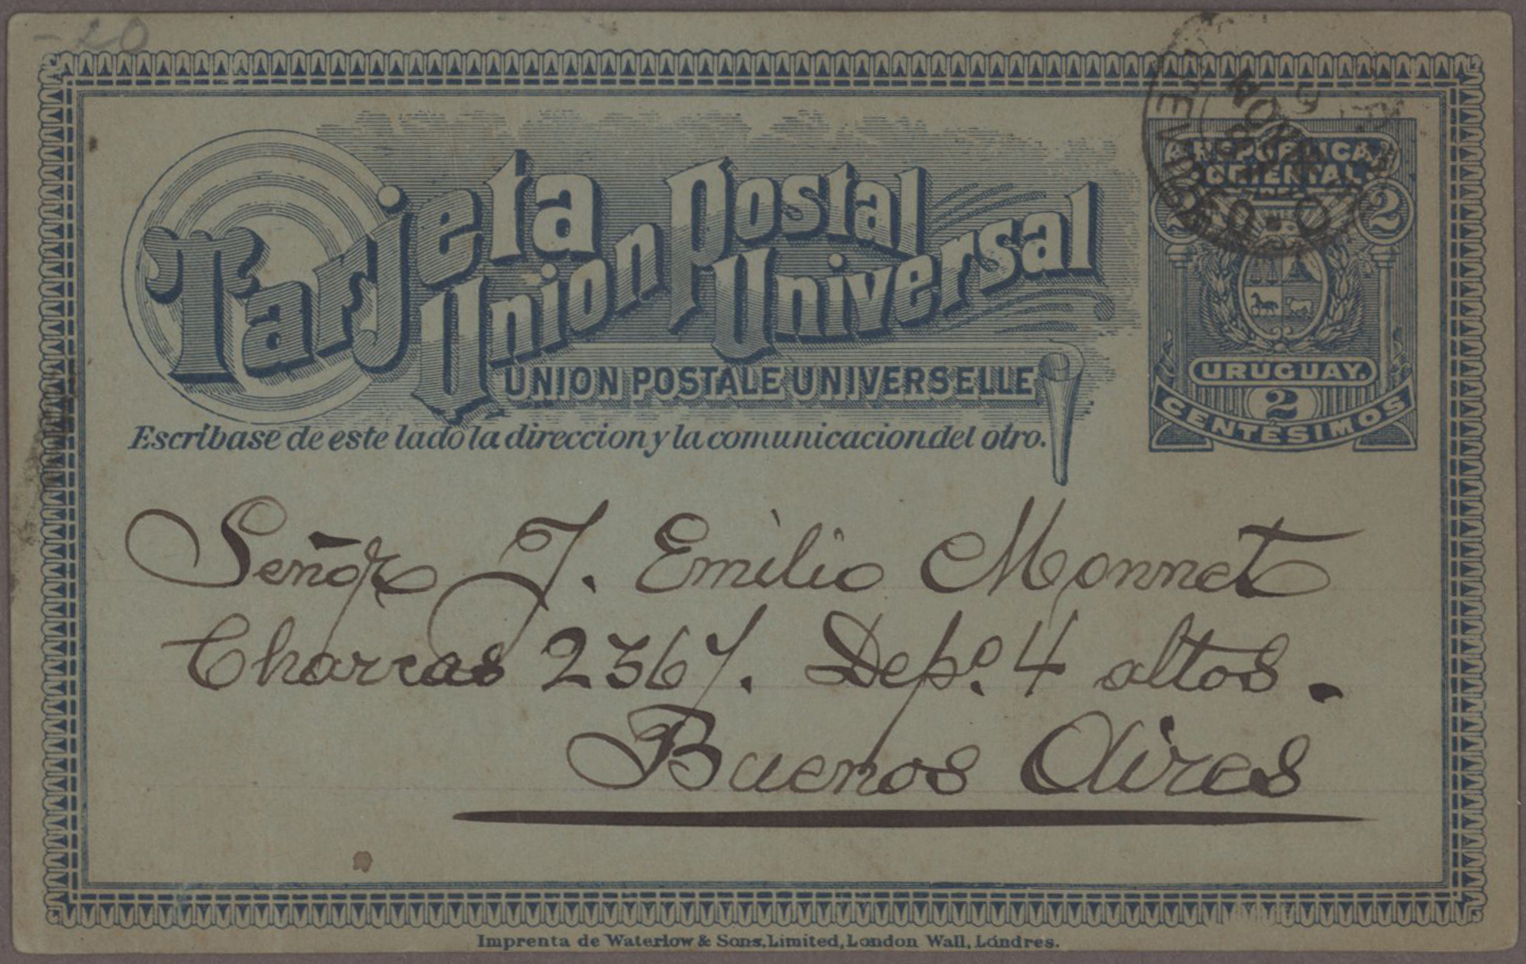 -20
Tarjeta Postal
Union Universal
UNION POSTALE UNIVERSELLE
Escribase de este lado la direccion y la comunicacion del otro.
REPÚBLICA
ORIENTAL
DEL
2 2
URUGUAY.
2
CENTÉSIMOS
Señor J. Emilio Monnet
Charcas 2367. Depº. 4 altos.
Buenos Aires
Imprenta de Waterlow & Sons, Limited, London Wall, Lóndres.